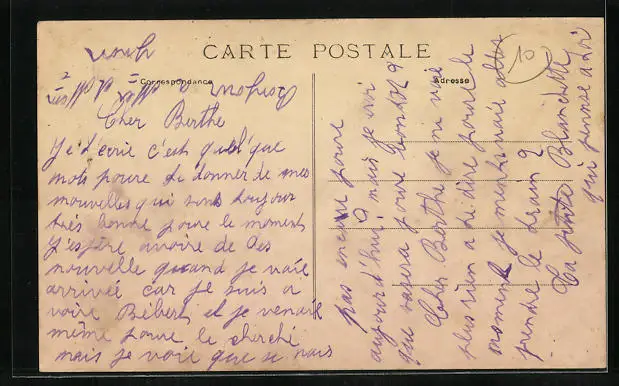 CARTE POSTALE
Correspondance
Adresse
10
Cher Berthe
Je t'écrie c'est quelque
mots poure te donner de mes
nouvelles qui sont toujour
très bonne poure le moment
J'espère avoire de tes
nouvelle quand je vaie
arrivée car je suis a
voire Bebert et je venais
même poure le cherché
mais je voie que se nais
pas encore poure
aujourd'hui mais je
que sapera poure bientôt
Cher Berthe je ne voie
plus rien a te dire poure le
moment je mentenaie aller
prendre le train
Ta petite Blanchette
qui pense a toi